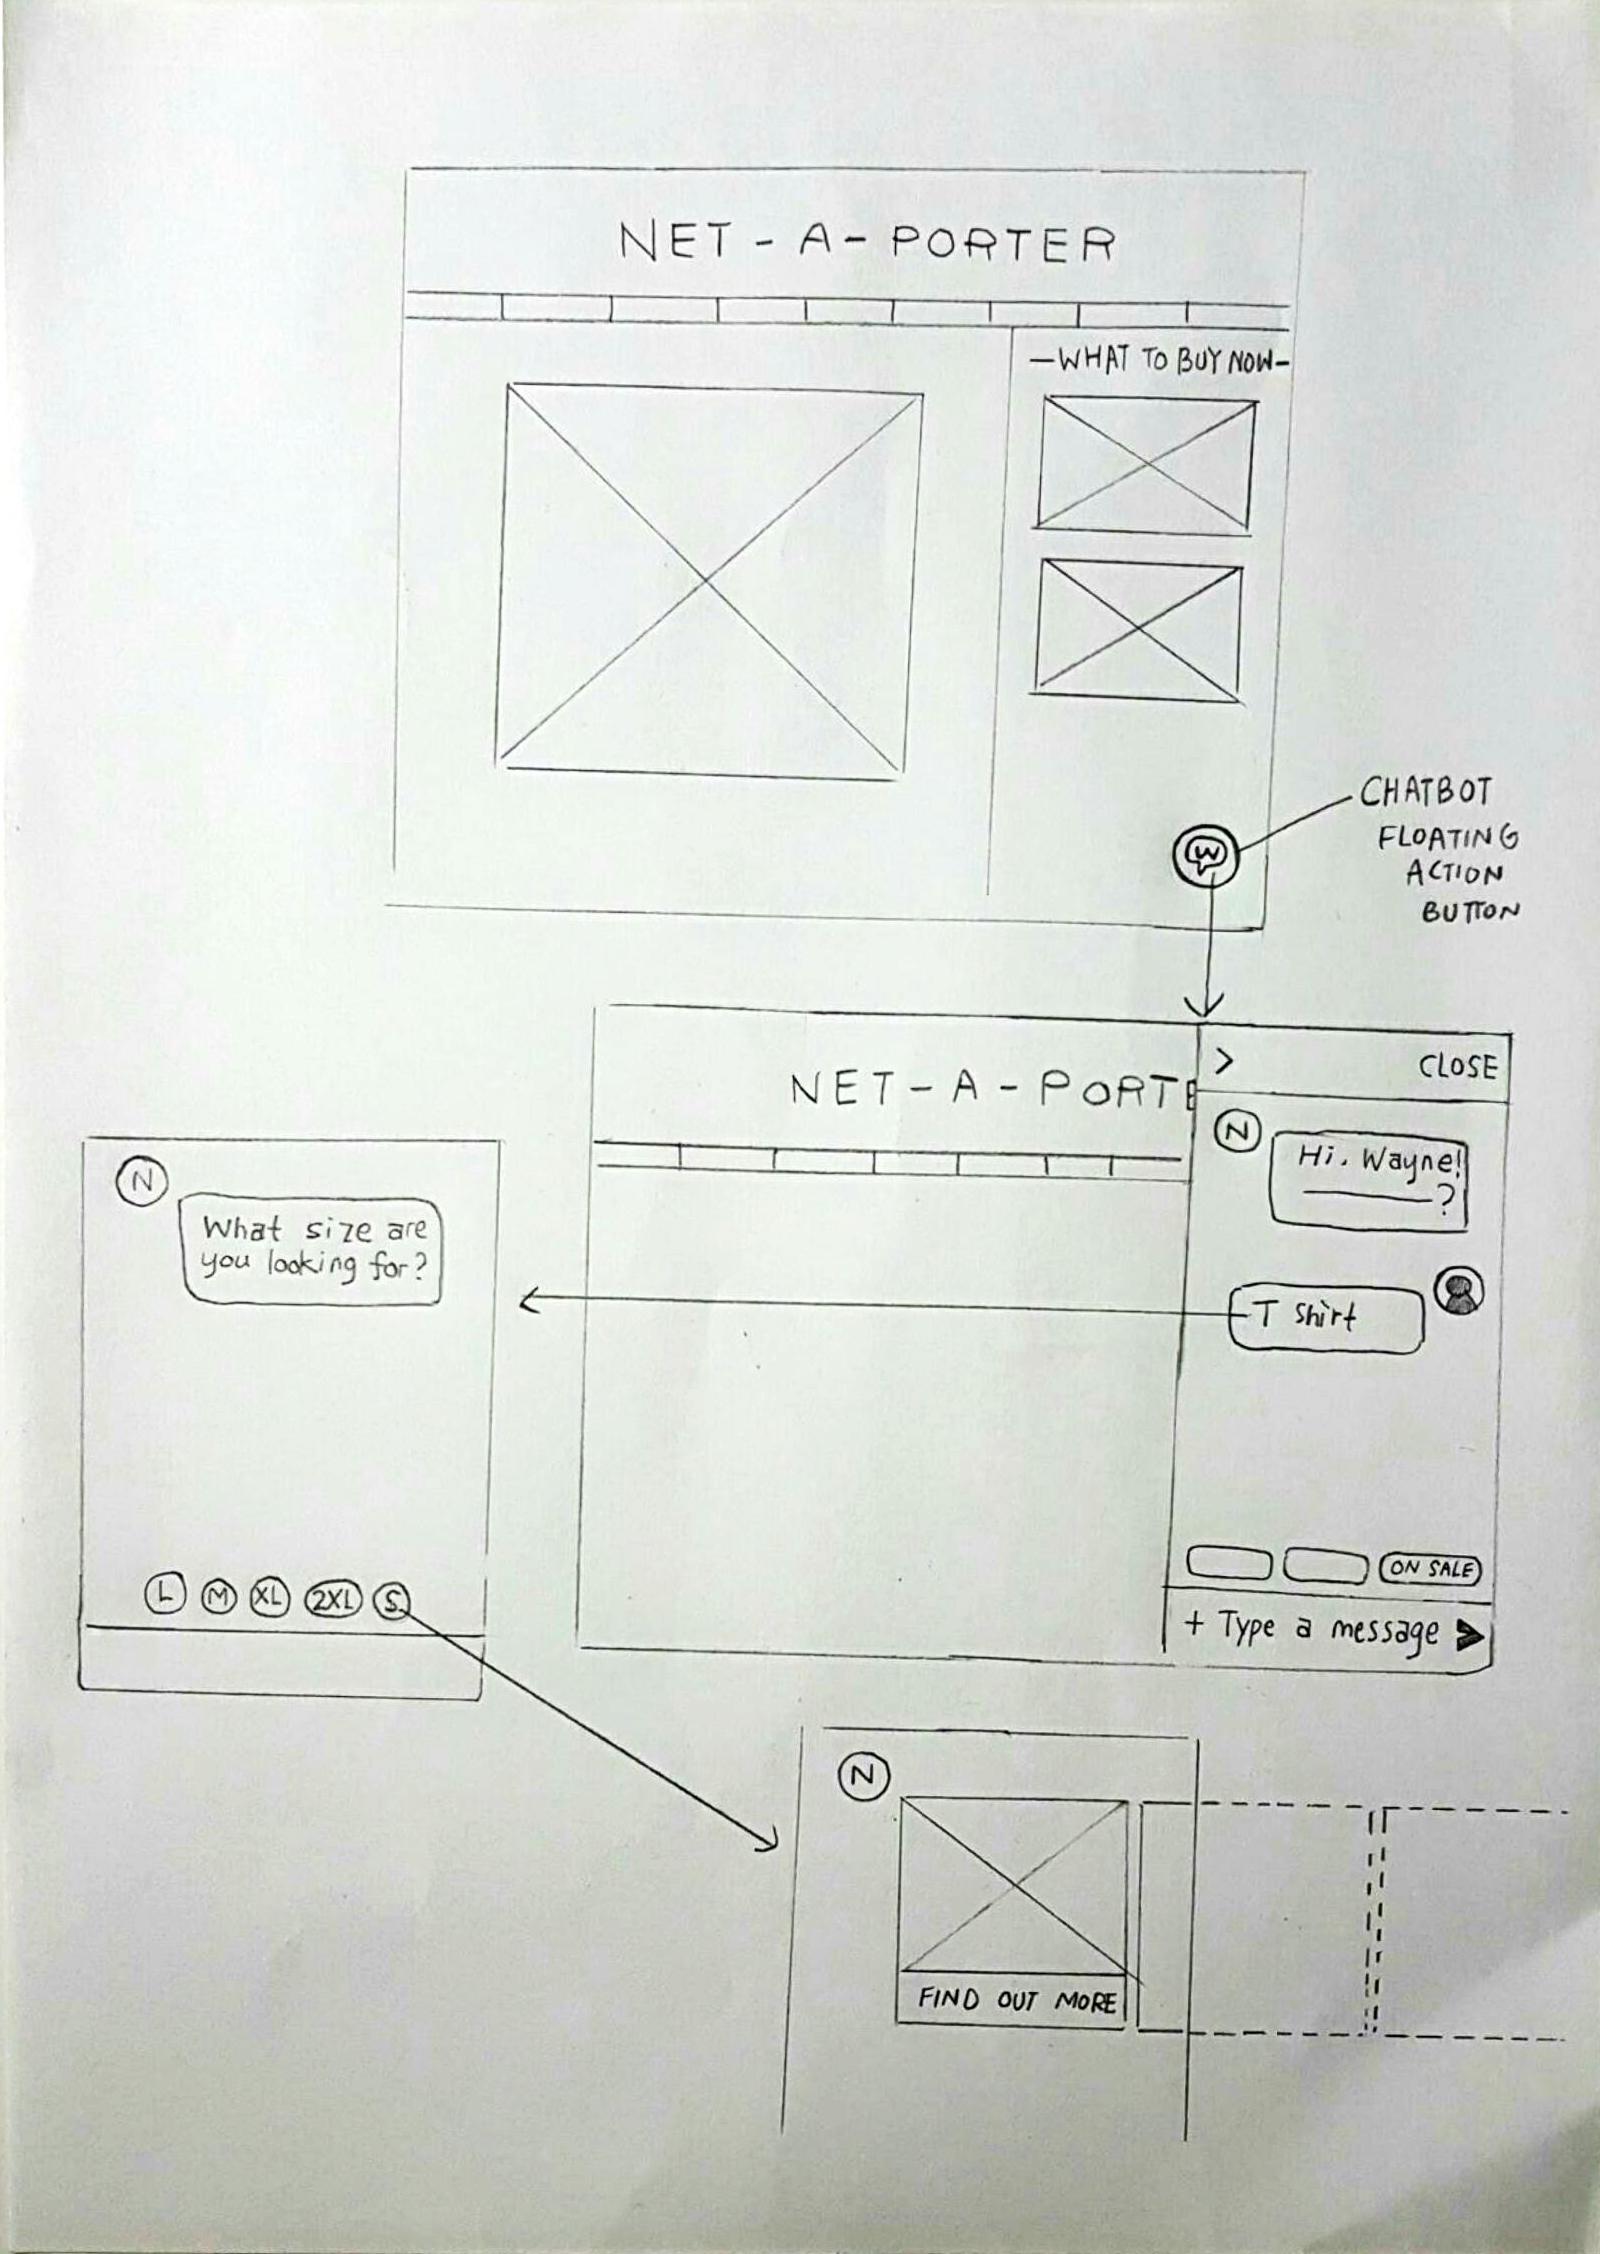 NET - A - PORTER
—WHAT TO BUY NOW—
W
CHATBOT
FLOATING
ACTION
BUTTON
NET - A - PORTE
> CLOSE
N
Hi. Wayne!
?
T Shirt
ON SALE
+ Type a message
N
What size are
you looking for?
L M XL 2XL S
N
FIND OUT MORE